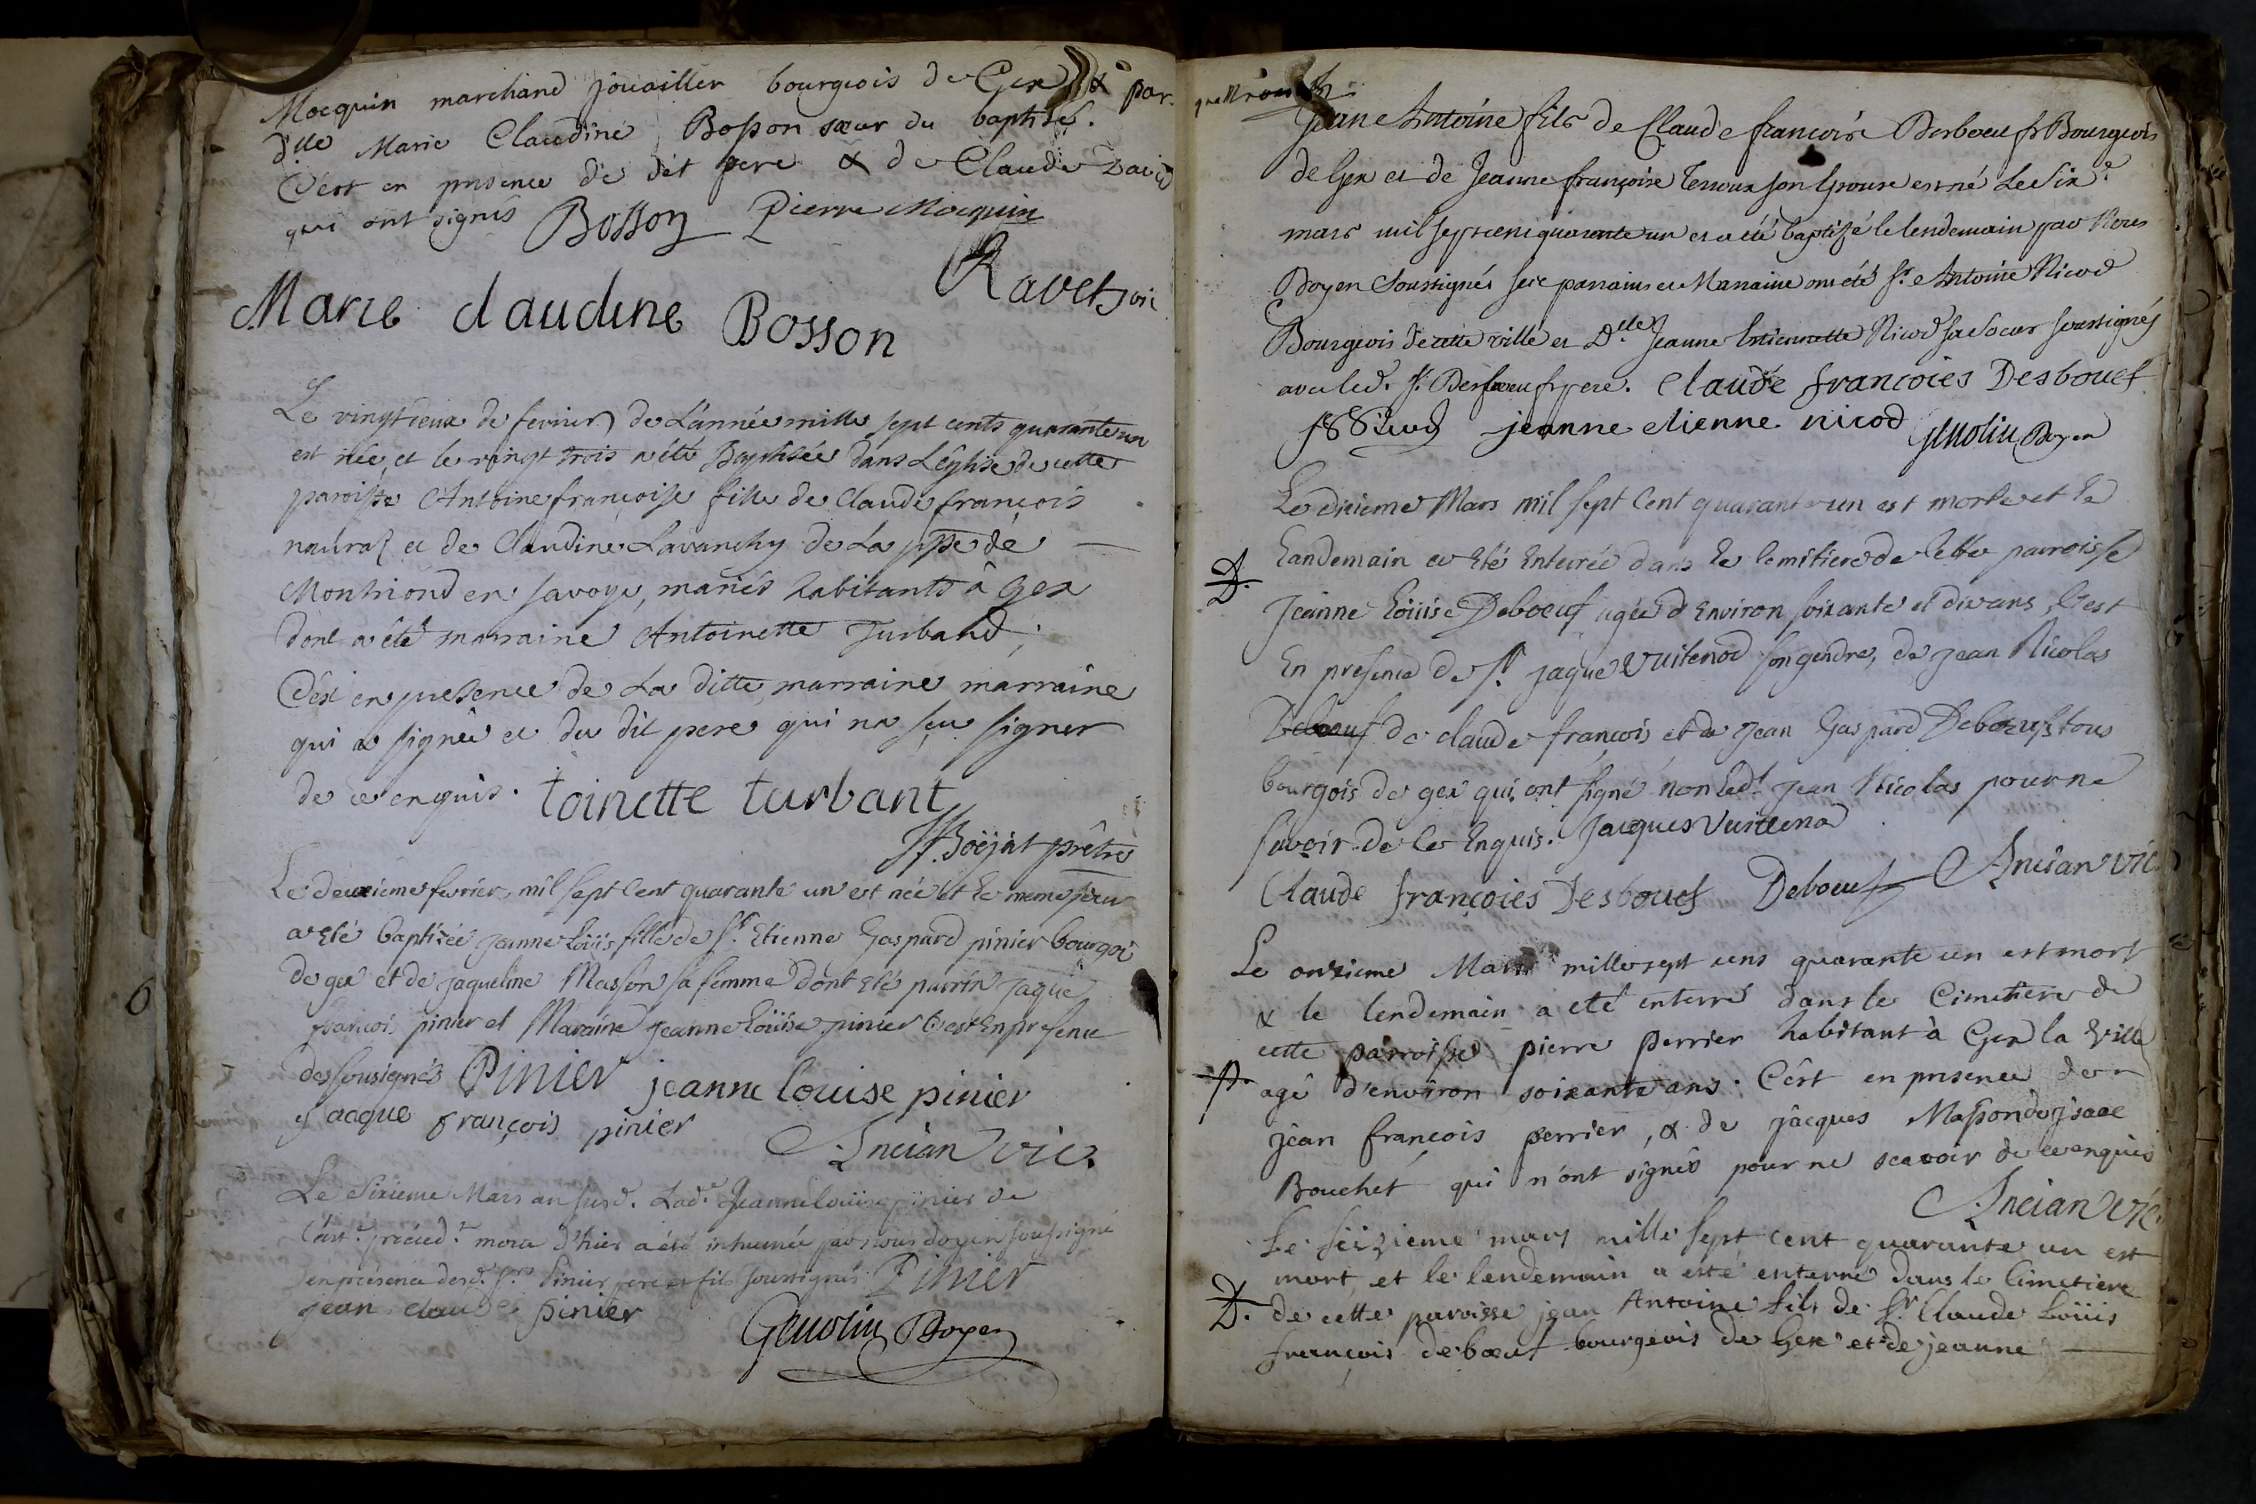 Mocquin marchand joüaillier bourgeois de Gex & par
d.lle Marie Claudine Bosson sœur du baptisé.
C'est en presence du dit pere & de Claude David
qui ont signés Bosson Pierre Mocquin
Ravet vic
Marie claudine Bosson
Le vingt deux de fevrier de L'année mille sept cents quarante un
est née, et le vingt trois a été Baptisée dans L'églisse de cette
paroisse Antoine françoise fille de Claude françois
et de Claudine Lavanchy de La ppse de
Montriond en Savoye, mariés habitants à Gex
dont a été marraine Antoinette Turband,
C'est en presence de La ditte marraine marraine
qui a signée et du dit pere qui n'a sçu signer
de ce enquis. toinette turbant
prêtre
Le deuxieme fevrier mil sept Cent quarante un est née et le meme jour
a eté baptisée jeanne Loüis fille de Sr. Etienne Gaspard pinier bourgoi
de gex et de jaqueline Masson sa femme dont eté parrin jaque
françois pinier et Maraine jeanne Loüise pinier C'est En presence
des sousignés Pinier jeanne louise pinier
jacque françois pinier
Ancian vic.
Le Sixieme Mars an susd. Lad.e Jeanne louise pinier de
l'art. précéd.t morte d'hier a été inhumée par nous doyen soussigné
en présence desd. Srs Pinier pere et fils soussignés. Pinier
jean claude pinier
Genolin Doyen
Jeane Antoine fils de Claude francois Desboeufs Bourgeois
de Gex et de Jeanne françoise Terroux son Epouse est né Le Six.e
mars mil sept cent quarante un et a été baptizé le lendemain par Nous
Doyen Soussigné ses parain et Maraine ont été Sr. Antoine Nicod
Bourgeois de cette ville et D.lle Jeanne Estiennette Nicod sa Soeur soussignés
avec led. Sr. Desboeufs pere. Claude françoies Desbouef
jeanne etienne nicod Genolin Doyen
Le dixieme Mars mil sept Cent quarante un est morte et le
Landemain a Eté Enterrée dans le Cemitiere de Cette parroisse
D.
Jeanne Loüise Deboeuf agée d'Environ soixante et dix ans, C'est
En presence de Sr. jaque Vuitenod son gendre, de jean Nicolas
Deboeuf de claude françois et de jean Gaspard Deboeufs tous
bourgois de gex qui ont signé non Led.t jean Nicolas pour ne
savoir de Ce Enquis. Jacques Vuitenod
Claude françoies Desbouef Deboeuf Ancian vic.
Le onzieme Mars mille sept cens quarante un est mort
& le lendemain a eté enterré dans le Cimetiere de
cette parroisse pierre perrier habitant à Gex la Ville
P.
agé d'environ soixante ans. C'est en presence de
jean françois perrier, & de jacques Masson de jsaac
Bouchet qui n'ont signés pour ne scavoir de ce enquis
Ancian vic.
Le seizieme mars mille sept cent quarante un est
mort, et le lendemain a esté enterré dans le Cimetiere
D. de cette paroisse jean Antoine fils de Sr. Claude Loüis
françois deboeuf bourgeois de Gex et de jeanne